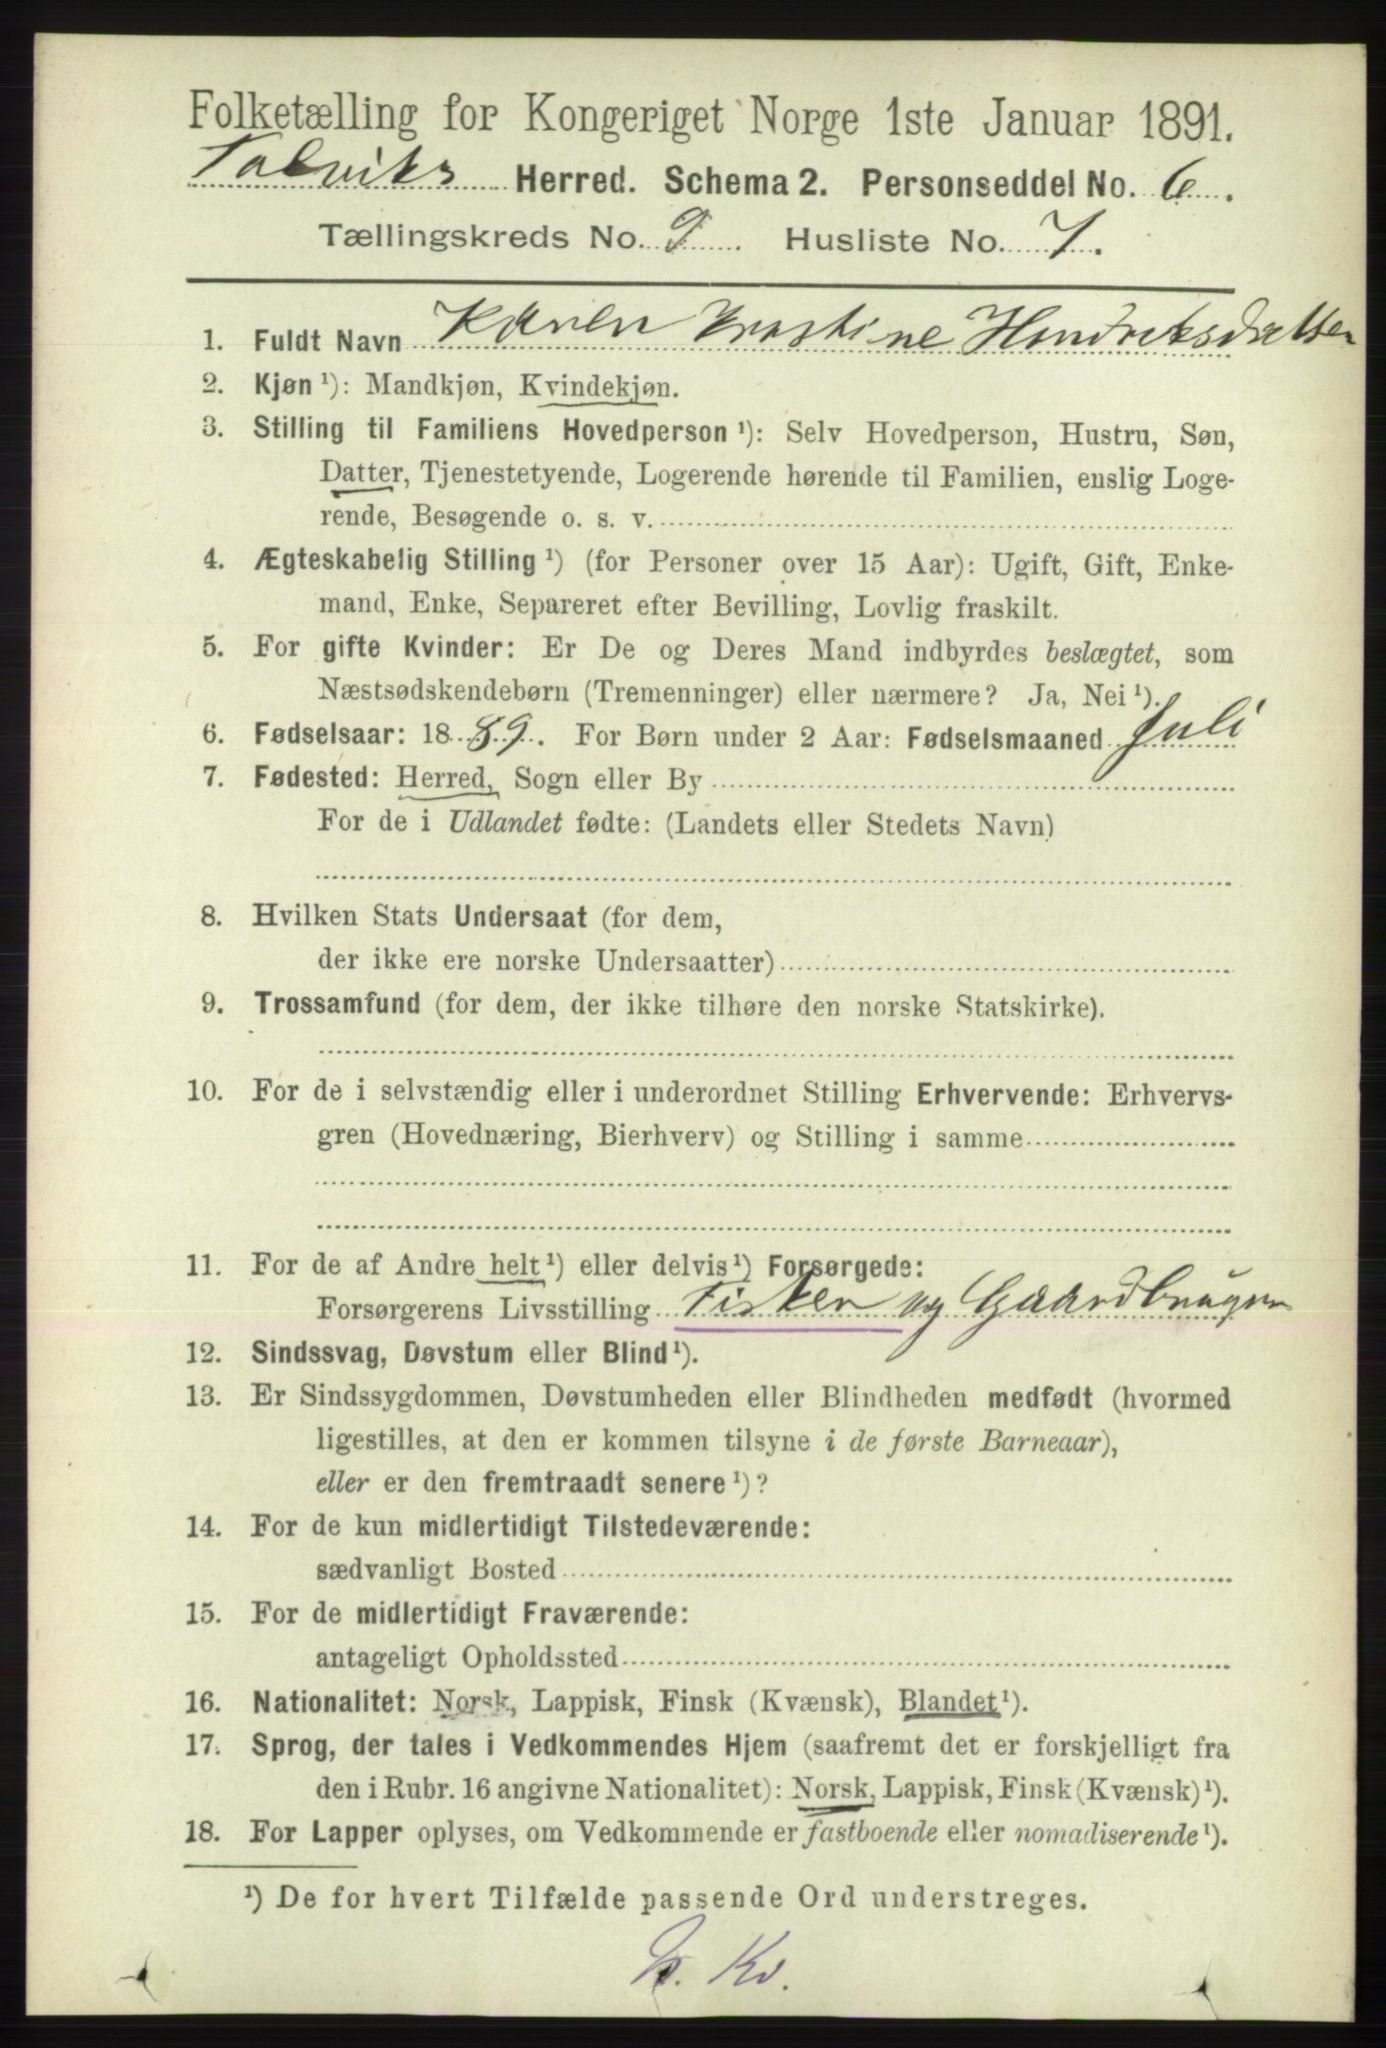 Folketælling for Kongeriget Norge 1ste Januar 1891.
Talviks Herred. Schema 2. Personseddel No. 6.
Tællingskreds No. 9 Husliste No. 7.
1. Fuldt Navn Karen Kristine Hendriksdatter
2. Kjøn ¹): Mandkjøn, Kvindekjøn.
3. Stilling til Familiens Hovedperson ¹): Selv Hovedperson, Hustru, Søn,
Datter, Tjenestetyende, Logerende hørende til Familien, enslig Loge-
rende, Besøgende o. s. v.
4. Ægteskabelig Stilling ¹) (for Personer over 15 Aar): Ugift, Gift, Enke-
mand, Enke, Separeret efter Bevilling, Lovlig fraskilt.
5. For gifte Kvinder: Er De og Deres Mand indbyrdes beslægtet, som
Næstsødskendebørn (Tremenninger) eller nærmere? Ja, Nei ¹).
6. Fødselsaar: 1889. For Børn under 2 Aar: Fødselsmaaned Juli
7. Fødested: Herred, Sogn eller By
For de i Udlandet fødte: (Landets eller Stedets Navn)
8. Hvilken Stats Undersaat (for dem,
der ikke ere norske Undersaatter)
9. Trossamfund (for dem, der ikke tilhøre den norske Statskirke).
10. For de i selvstændig eller i underordnet Stilling Erhvervende: Erhvervs-
gren (Hovednæring, Bierhverv) og Stilling i samme
11. For de af Andre helt ¹) eller delvis ¹) Forsørgede:
Forsørgerens Livsstilling Fisker og Gaardbruger
12. Sindssvag, Døvstum eller Blind ¹).
13. Er Sindssygdommen, Døvstumheden eller Blindheden medfødt (hvormed
ligestilles, at den er kommen tilsyne i de første Barneaar),
eller er den fremtraadt senere ¹)?
14. For de kun midlertidigt Tilstedeværende:
sædvanligt Bosted
15. For de midlertidigt Fraværende:
antageligt Opholdssted
16. Nationalitet: Norsk, Lappisk, Finsk (Kvænsk), Blandet ¹).
17. Sprog, der tales i Vedkommendes Hjem (saafremt det er forskjelligt fra
den i Rubr. 16 angivne Nationalitet): Norsk, Lappisk, Finsk (Kvænsk) ¹).
18. For Lapper oplyses, om Vedkommende er fastboende eller nomadiserende ¹).
¹) De for hvert Tilfælde passende Ord understreges.
Kv.